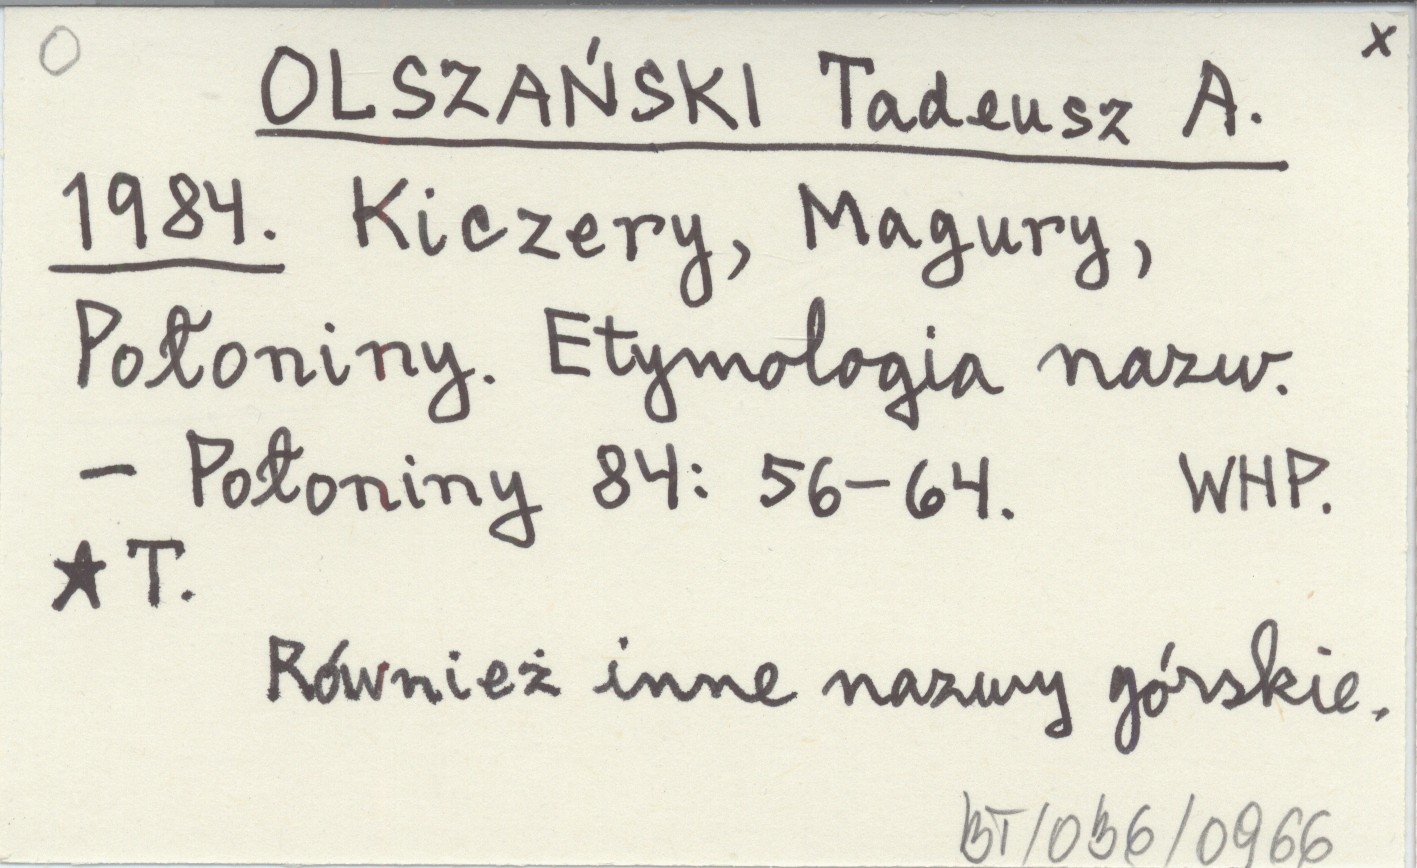 O x
OLSZAŃSKI Tadeusz A.
1984. Kiczery, Magury,
Połoniny. Etymologia nazw.
– Połoniny 84: 56–64. WHP.
★ T.
Również inne nazwy górskie.
BT/036/0966